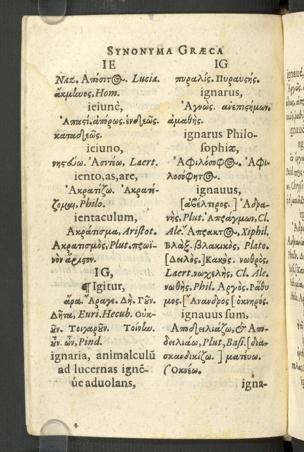 SYNONYMA GRÆCA
IE
Naz. Ἀπόσιτος. Lucia.
ἄκμηνος. Hom.
ieiunè,
Ἀπασί. ἀπόρως. ἐνδεῶς.
ieiuno,
νηστεύω. Ἀσιτέω, Laert.
iento, as, are,
Ἀκρατίζω. Ἀκρατί-
ζομαι, Philo.
ientaculum,
Ἀκράτισμα, Aristot.
Ἀκρατισμὸς, Plut. πρωϊ-
νὸν ἄριστον.
IG,
¶ Igitur,
ἄρα. Ἆραγε. Δή. Γοῦν.
Δῆτα, Euri. Hecub. Οὐκ-
οῦν. Τοιγαροῦν. Τοίνυν.
οὖν. ὦν, Pind.
ignaria, animalculũ
ad lucernas ignẽ-
úe aduolans,
IG
πυραλίς. Πυραύστης.
ignarus,
Ἀγνώς. ἀνεπιστήμων
ἀμαθής.
ignarus Philo-
sophiæ,
Ἀφιλόσοφος. Ἀφι-
λοσόφητος.
ignauus,
[ἀβέλτερος.] Ἀδρα-
νής. Plut. Ἀπράγμων, Cl.
Ale. Ἄπρακτος, Xiphil.
Βλὰξ. βλακικὸς, Plato.
[Δειλός.] Κακός. νωθρὸς,
Laert. νωχελὴς, Cl. Ale.
νωθὴς, Phil. Ἀργός. Ῥάθυ-
μος. [Ἄνανδρος [ὀκνηρός.
ignauus sum,
Ἀποδειλιάζω, & Ἀπο-
δειλιάω, Plut, Basi. [δια-
σκανδικίζω.] ματεύω.
Ὀκνέω.
igna-